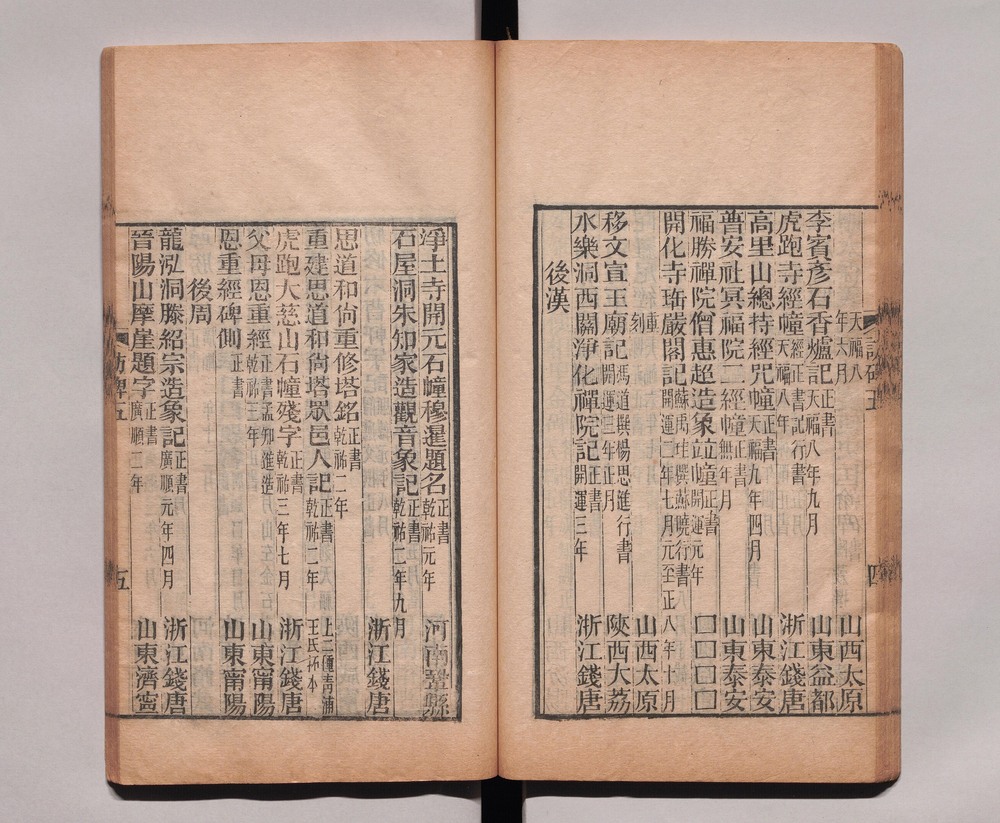 天福八年六月 山西太原
李賓彥石香爐記 正書 天福八年九月 山東益都
虎跑寺經幢 經正書記行書 天福八年 浙江錢唐
高里山總持經咒幢 正書 天福九年四月 山東泰安
普安社冥福院二經幢 正書 無年月 山東泰安
福勝禪院僧惠超造象並幢 正書 開運元年 囗囗囗囗
開化寺嚴閣記 蘇禹珪撰蘇曉行書 開運二年七月元至正八年十月
重刻 山西太原
移文宣王廟記 馮道撰楊思進行書 開運三年正月 陝西大荔
水樂洞西關淨化禪院記 正書 開運三年 浙江錢唐
後漢
淨土寺開元石幢穆暹題名 正書 乾祐元年 河南鞏縣
石屋洞朱知家造觀音象記 正書 乾祐二年九月
浙江錢唐
思道和尚重修塔銘 正書 乾祐二年
重建思道和尚塔眾邑人記 正書 乾祐二年 上二種青浦王氏拓本
虎跑大慈山石幢殘字 正書 乾祐三年七月 浙江錢唐
父母恩重經 正書孟知進造 乾祐三年 山東甯陽
恩重經碑側 正書 山東甯陽
後周
龍泓洞滕紹宗造象記 正書 廣順元年四月 浙江錢唐
晉陽山摩崖題字 正書 廣順二年 山東濟寧
訪碑五
五
四